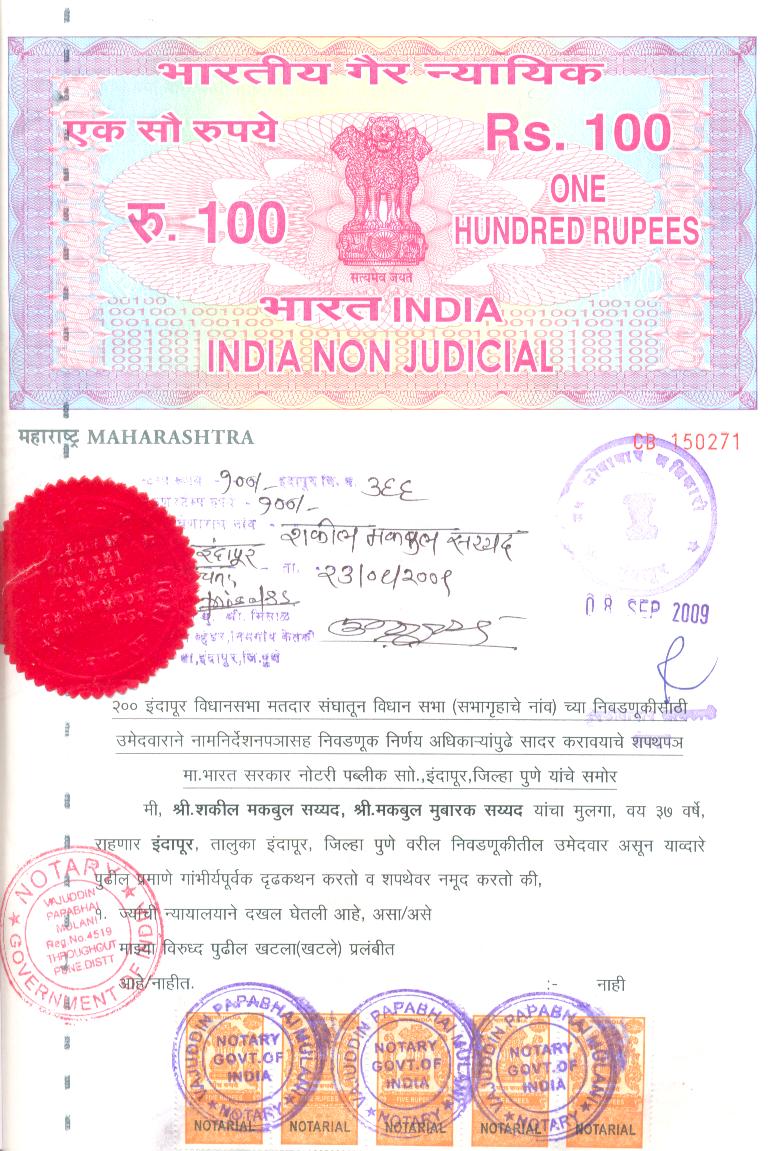 भारतीय गैर न्यायिक
एक सौ रुपये
Rs. 100
रु. 100
ONE
HUNDRED RUPEES
सत्यमेव जयते
भारत INDIA
INDIA NON JUDICIAL
महाराष्ट्र MAHARASHTRA
CB 150271
१००/- इंदापूर ३६६
१००/-
शकील मकबुल सय्यद
इंदापूर
ता.
08 SEP 2009
इंदापूर, जि. पुणे
२०० इंदापूर विधानसभा मतदार संघातून विधान सभा (सभागृहाचे नांव) च्या निवडणूकीसाठी
उमेदवाराने नामनिर्देशनपञासह निवडणूक निर्णय अधिकाऱ्यांपुढे सादर करावयाचे शपथपञ
मा.भारत सरकार नोटरी पब्लीक साो.,इंदापूर,जिल्हा पुणे यांचे समोर
मी, श्री.शकील मकबुल सय्यद, श्री.मकबुल मुबारक सय्यद यांचा मुलगा, वय ३७ वर्षे,
राहणार इंदापूर, तालुका इंदापूर, जिल्हा पुणे वरील निवडणूकीतील उमेदवार असून याव्दारे
पुढील प्रमाणे गांभीर्यपूर्वक दृढकथन करतो व शपथेवर नमूद करतो की,
१. ज्यांची न्यायालयाने दखल घेतली आहे, असा/असे
माझ्या विरुध्द पुढील खटला(खटले) प्रलंबीत
आहे/नाहीत. :- नाही
NOTARY
GOVERNMENT OF INDIA
VAJUDDIN
PAPABHAI
MULANI
Reg.No.4519
THROUGHOUT
PUNE DISTT
VAJUDDIN PAPABHAI MULANI
NOTARY
GOVT.OF
INDIA
NOTARY
VAJUDDIN PAPABHAI MULANI
NOTARY
GOVT.OF
INDIA
NOTARY
VAJUDDIN PAPABHAI MULANI
NOTARY
GOVT.OF
INDIA
NOTARY
FIVE RUPEES
NOTARIAL NOTARIAL NOTARIAL NOTARIAL NOTARIAL